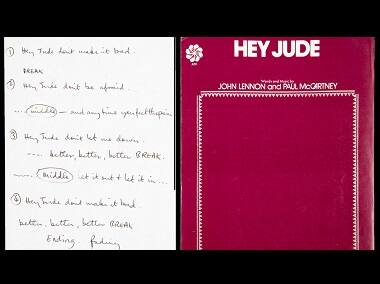 ① Hey Jude don't make it bad.
BREAK
② Hey Jude don't be afraid.
.... middle — and anytime you feel the pain
③ Hey Jude don't let me down.
.... better, better, better BREAK.
...... middle let it out & let it in...
④ Hey Jude don't make it bad.
better, better, better BREAK
Ending. fading
HEY JUDE
Words and Music by
JOHN LENNON and PAUL McCARTNEY